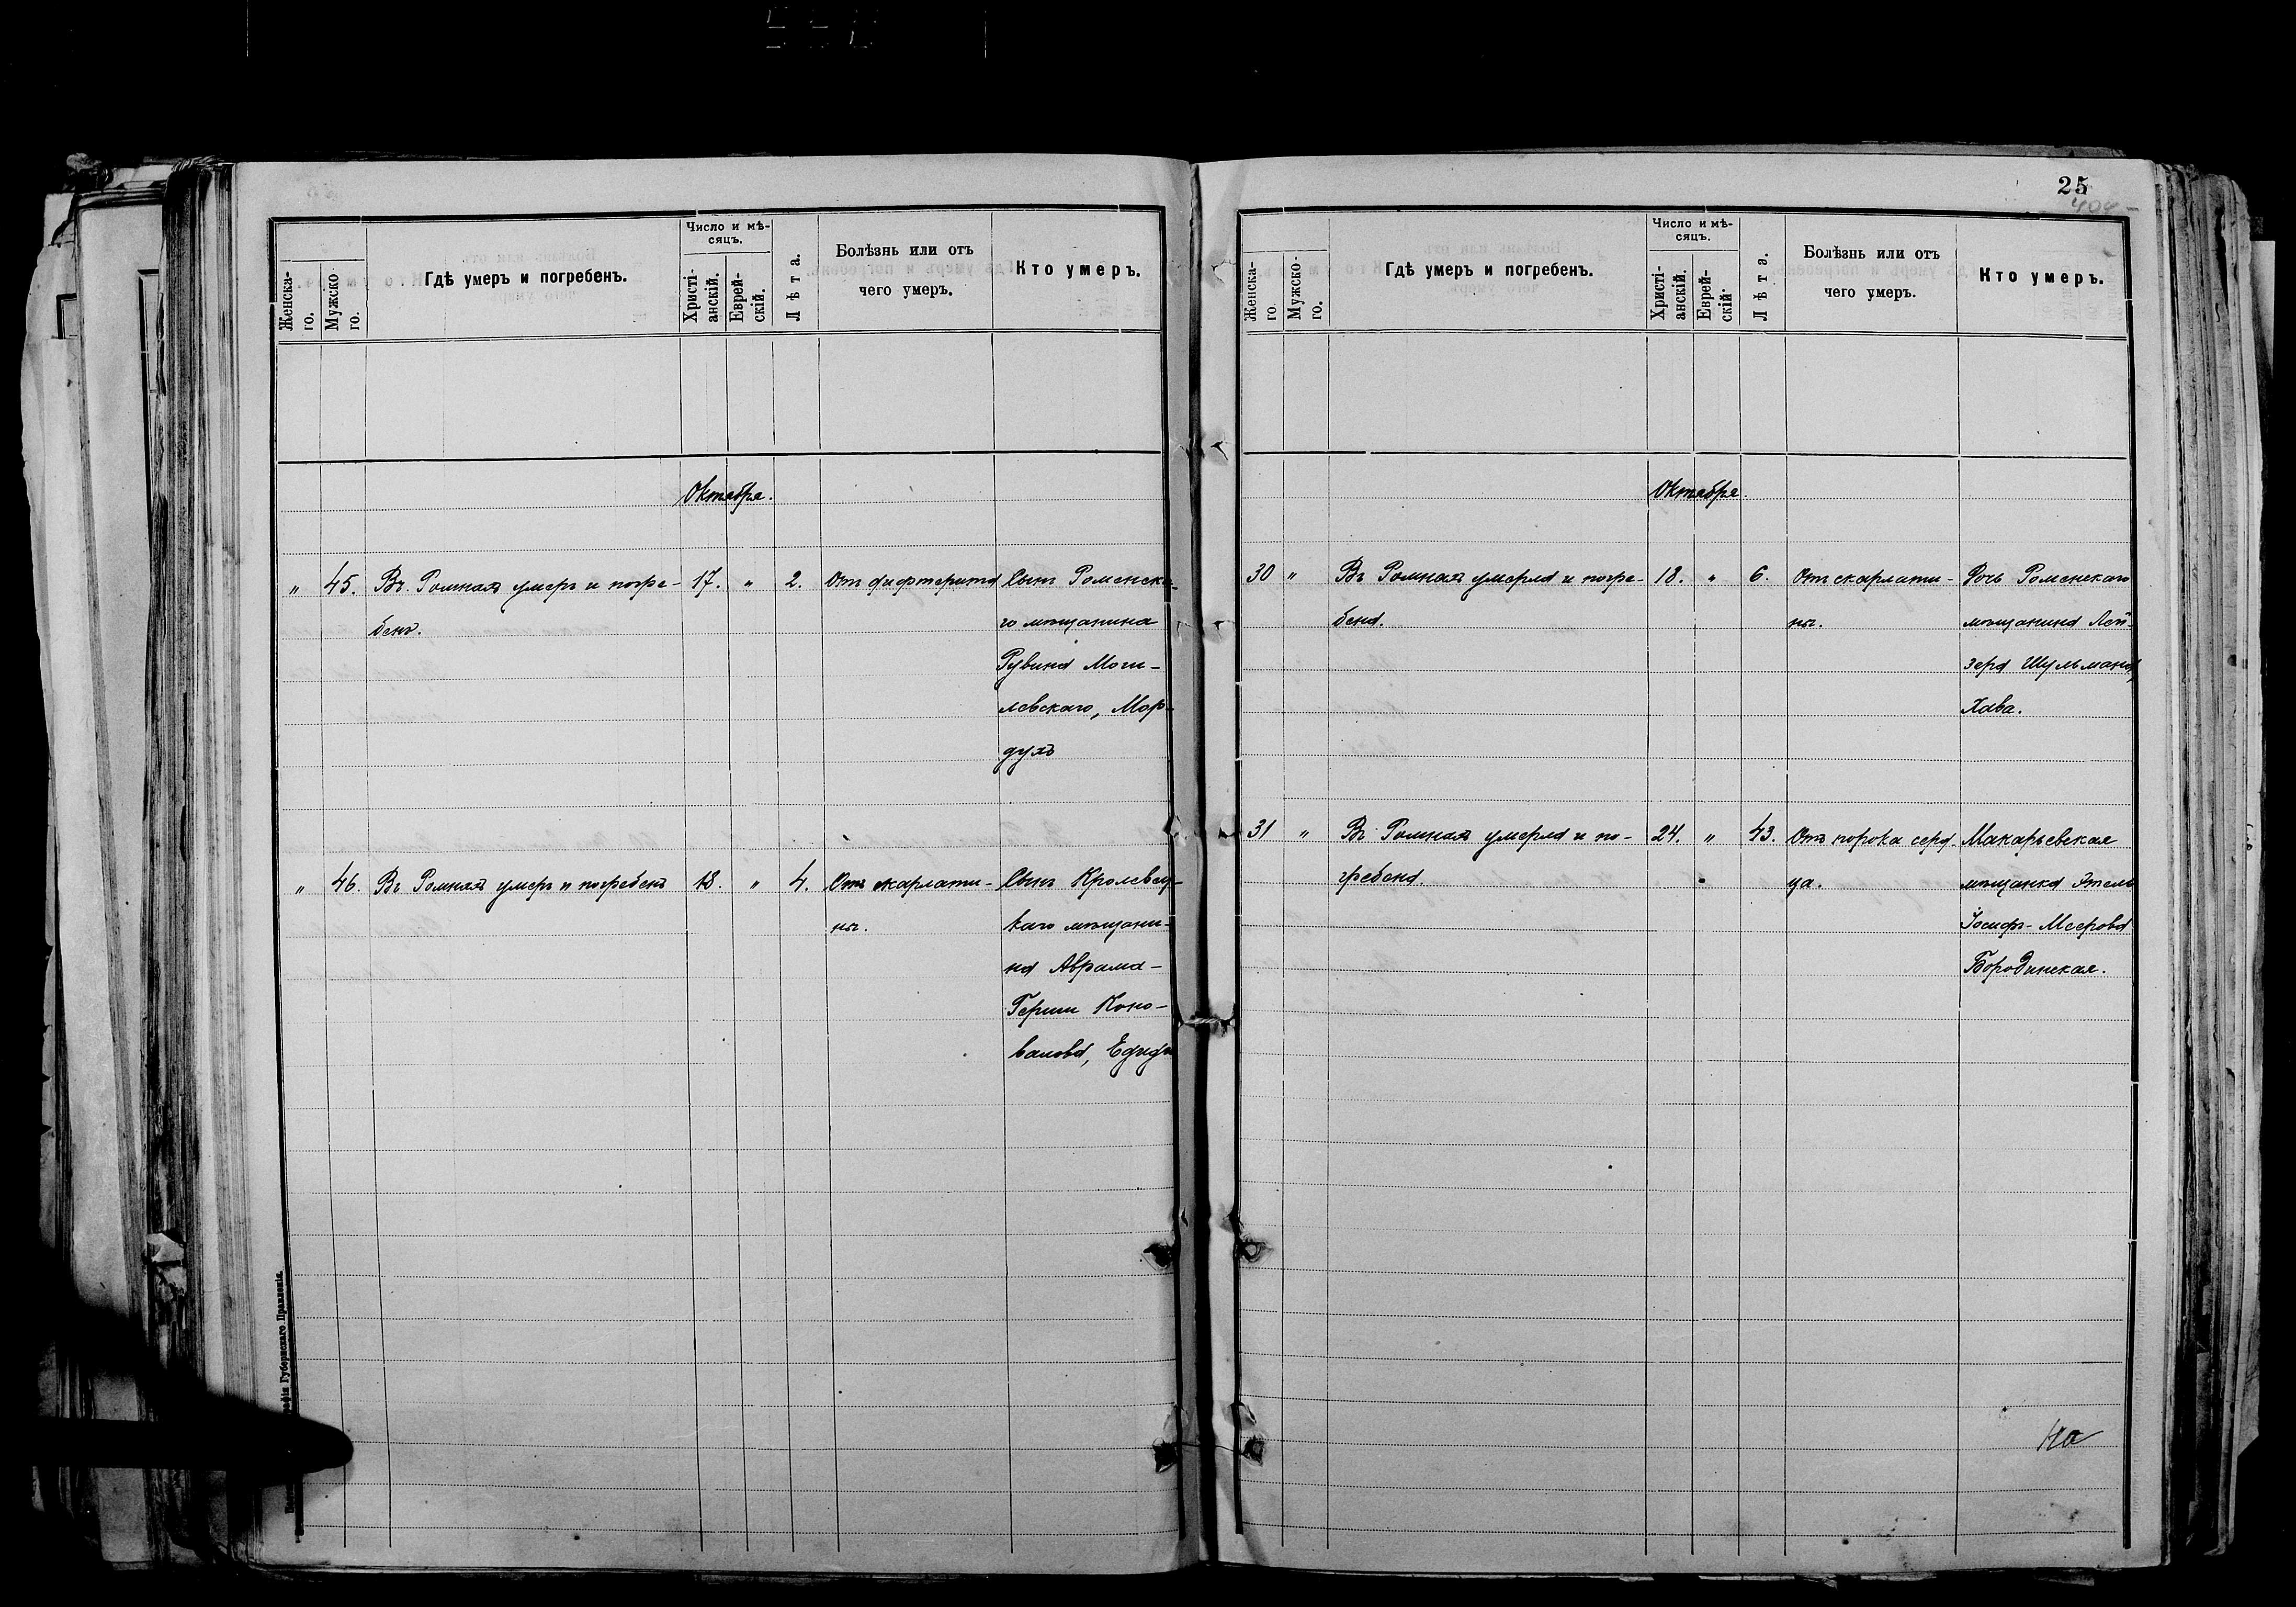 Женска-
го.
Мужско-
го.
Гдѣ умеръ и погребенъ.
Число и мѣ-
сяцъ.
Христі-
анскій.
Еврей-
скій.
Лѣта.
Болѣзнь или отъ
чего умеръ.
Кто умеръ.
Октября.
„ 45. Въ Ромнахъ умеръ и погре- 17. „ 2. Отъ дифтерита Сынъ Роменска-
бенъ. го мѣщанина
Рувина Моги-
левскаго, Мор-
духъ
„ 46. Въ Ромнахъ умеръ и погребенъ 18. „ 4. Отъ скарлати- Сынъ Кролевец-
ны. каго мѣщани-
на Аврама-
Герши Коно-
валова,
Губернскаго Правленія.
25
404
Женска-
го
Мужско-
го.
Гдѣ умеръ и погребенъ.
Число и мѣ-
сяцъ.
Христі-
анскій.
Еврей-
скій.
Лѣта.
Болѣзнь или отъ
чего умеръ.
Кто умеръ.
Октября.
30 „ Въ Ромнахъ умерла и погре- 18. „ 6. Отъ скарлати- Дочь Роменскаго
бена. ны. мѣщанина Лей-
зера Шульмана,
Хава.
31 „ Въ Ромнахъ умерла и по- 24. „ 43. Отъ порока серд- Макарьевская
гребена. ца. мѣщанка Этель
Іосифъ-Меерова
Бородинская.